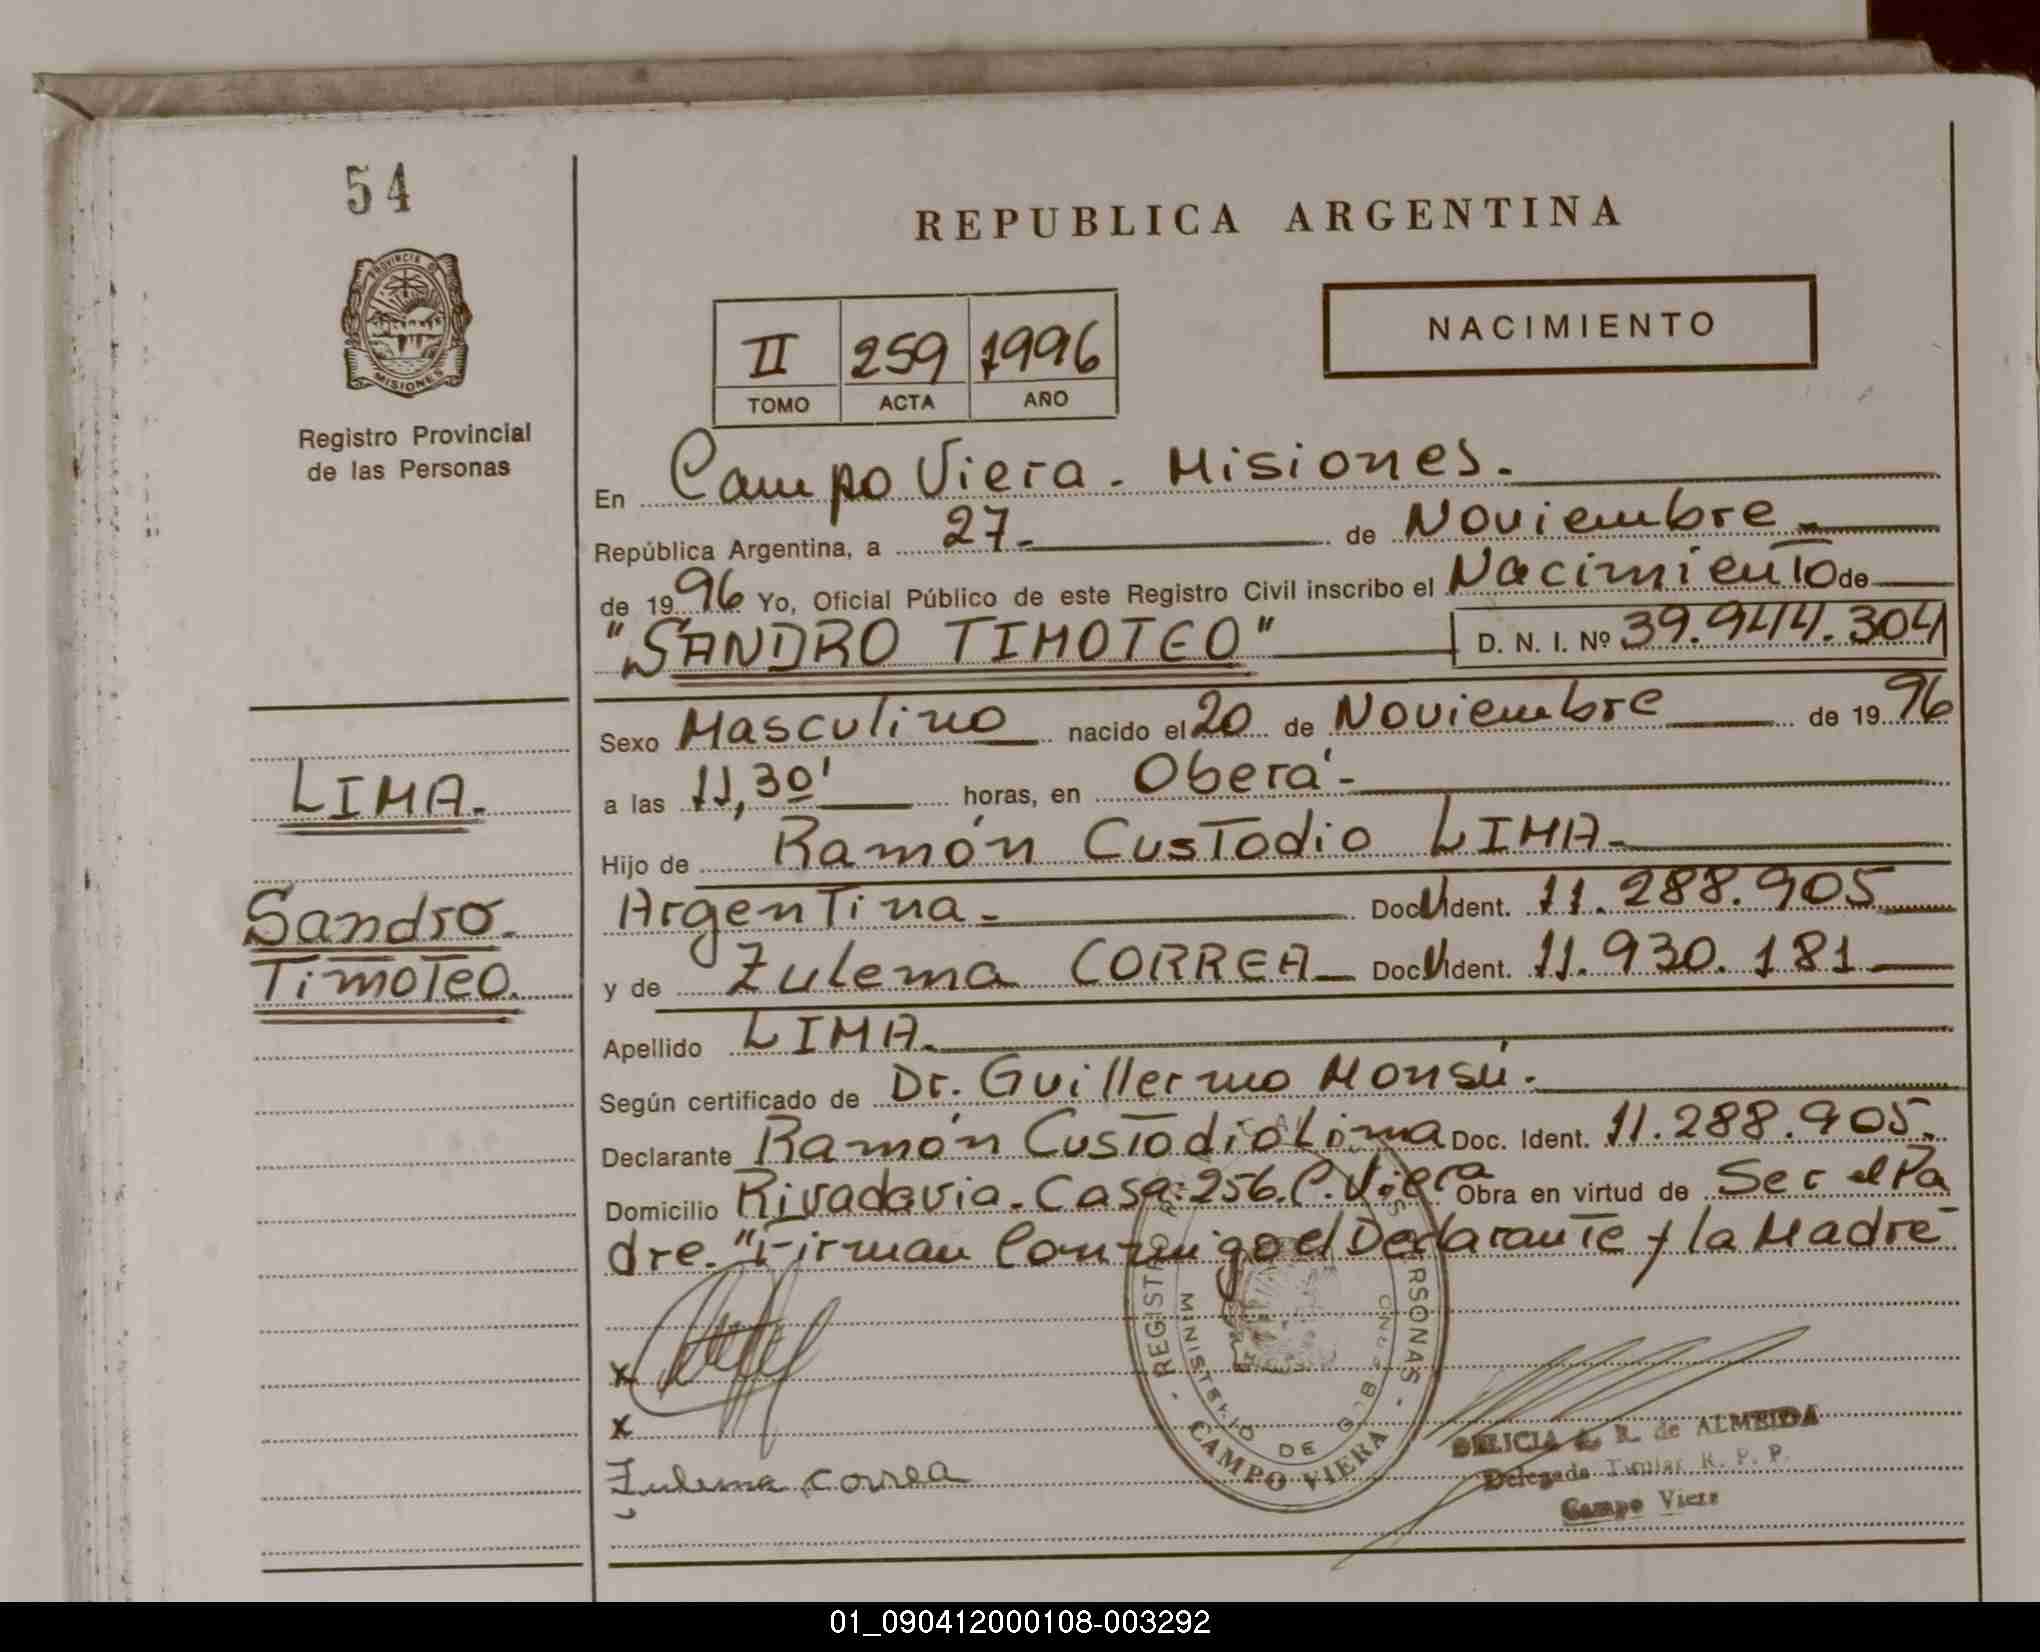 54
PROVINCIA DE
MISIONES
Registro Provincial
de las Personas
LIMA.
Sandro.
Timoteo.
REPUBLICA ARGENTINA
NACIMIENTO
II 259 1996
TOMO ACTA AÑO
En Campo Viera. Misiones.
República Argentina, a 27 de Noviembre
de 1996 Yo, Oficial Público de este Registro Civil inscribo el Nacimiento de
"SANDRO TIMOTEO" D. N. I. Nº 39.944.304
Sexo Masculino nacido el 20 de Noviembre de 1996
a las 11,30' horas, en Oberá
Hijo de Ramón Custodio LIMA
Argentina Doc. Ident. 11.288.905
y de Zulema CORREA Doc. Ident. 11.930.181
Apellido LIMA.
Según certificado de Dr. Guillermo Monsú.
Declarante Ramón Custodio Lima Doc. Ident. 11.288.905.
Domicilio Rivadavia. Casa: 256. C. Viera Obra en virtud de Ser el Pa
dre. "Firman Conmigo el Declarante y la Madre
x
x
Zulema correa
REGISTRO PERSONAS
MINISTERIO DE GOB
CAMPO VIERA
DELICIA R. de ALMEIDA
Delegada Titular R. P. P.
Campo Viera
01_090412000108-003292